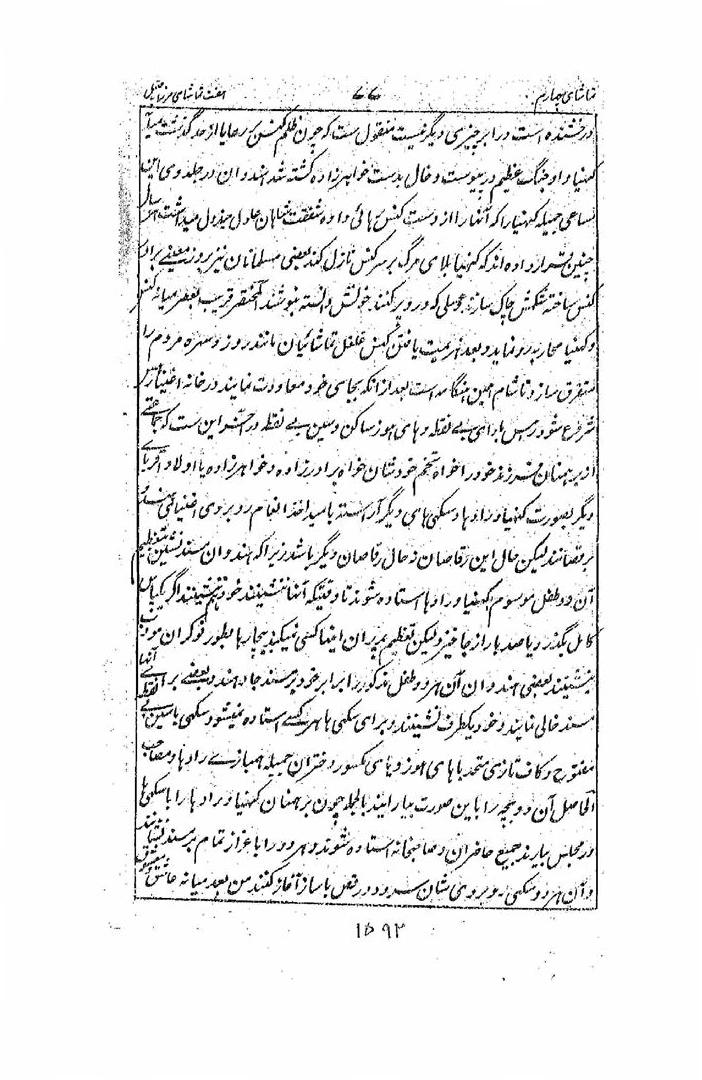 تماشای چهارم ۷۷ هفت تماشای مرزا قتیل
درخشنده است در ابر چیزی دیگر نیست منقول ست که چون ظلم کنس بر رعایا از حد گذشت میان
کنهیا و او جنگ عظیم در پیوست و خال بدست خواهرزاده کشته شد هندوان در جلدوی این
مساعی جمیله کنهیا را که آنها را از دست کنس رهائی داده شفقت شاهان عادل مبذول میداشت هر سال
چنین قرار داده اند که کنهیا بلای مرگ بر سر کنس نازل کند بعضی مسلمانان نیز روز معینی برای
کنس ساخته شکمش چاک سازند عسلی که درو پر کنند خونش دانسته بنوشند المختصر قریب العصر میانه کنس
و کنهیا محاربه رو نماید و بعد هزیمت یافتن کنس غلغل تماشائیان مانند روز دسهره مردم را
متفرق سازد تا شام همین هنگامه است بعد از آنکه بجای خود معاودت نمایند در خانه اغنیا
شروع شود رهس با رای بی نقطه و های هوز ساکن و سین بی نقطه در آخر این ست که جماعتی
از برهمنان فرزند خود را خواه تخم خودشان خواه برادرزاده و خواهرزاده یا اولاد اقربای
دیگر بصورت کنهیا و رادها و سکهی های دیگر آراسته بامید اخذ انعام روبروی اغنیای هنود
برقصانند لیکن حال این رقاصان ز حال رقاصان دیگر باشد زیرا که هندوان مسند نشین بتعظیم
آن دو طفل موسوم کنهیا و رادها استاده شوند تا وقتیکه آنها ننشینند خود هم ننشینند اگر یکپاس
کامل بگذرد یا صد بار از جا خیزد لیکن تعظیم پدران اینها کسی نمیکند بیچارها بطور نوکران مودب
می نشینند بعضی هندوان آن هر دو طفل مذکور را برابر خود بر مسند جا دهند و بعضی برای آنها
مسند خالی نمایند و خود یکطرف نشینند و برای سکهی ها هر کسی استاده نمیشود سکهی با سین بی نقطه
مفتوح و کاف تازی متحد با های هوز و یای مکسور دختران جمیله همبازی رادها و مصاحب
الحاصل آن دو بچه را باین صورت بیارایند بالجمله چون برهمنان کنهیا و رادها را با سکهی ها
در مجلس بیارند جمیع حاضران و صاحبخانه استاده شوند و هر دو را باعزاز تمام بر مسند بنشانند
و آن هر دو سکهی روبروی شان سرود و رقص با ساز آغاز کنند من بعد میانه عاشق و معشوق
۱۵۹۲